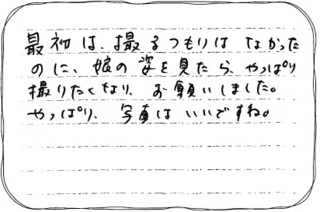 最初は、撮るつもりはなかった
のに、娘の姿を見たら、やっぱり
撮りたくなり、お願いしました。
やっぱり、写真はいいですね。